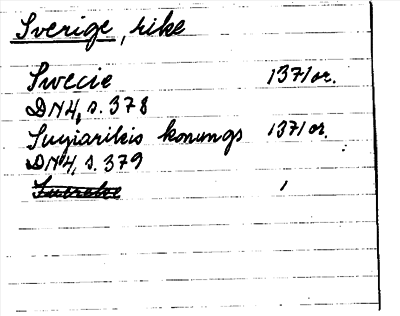 Sverige, rike
Swecie 1371 or.
DN 4, s. 378
Suyiarikis konungs 1371 or.
DN 4, s. 379